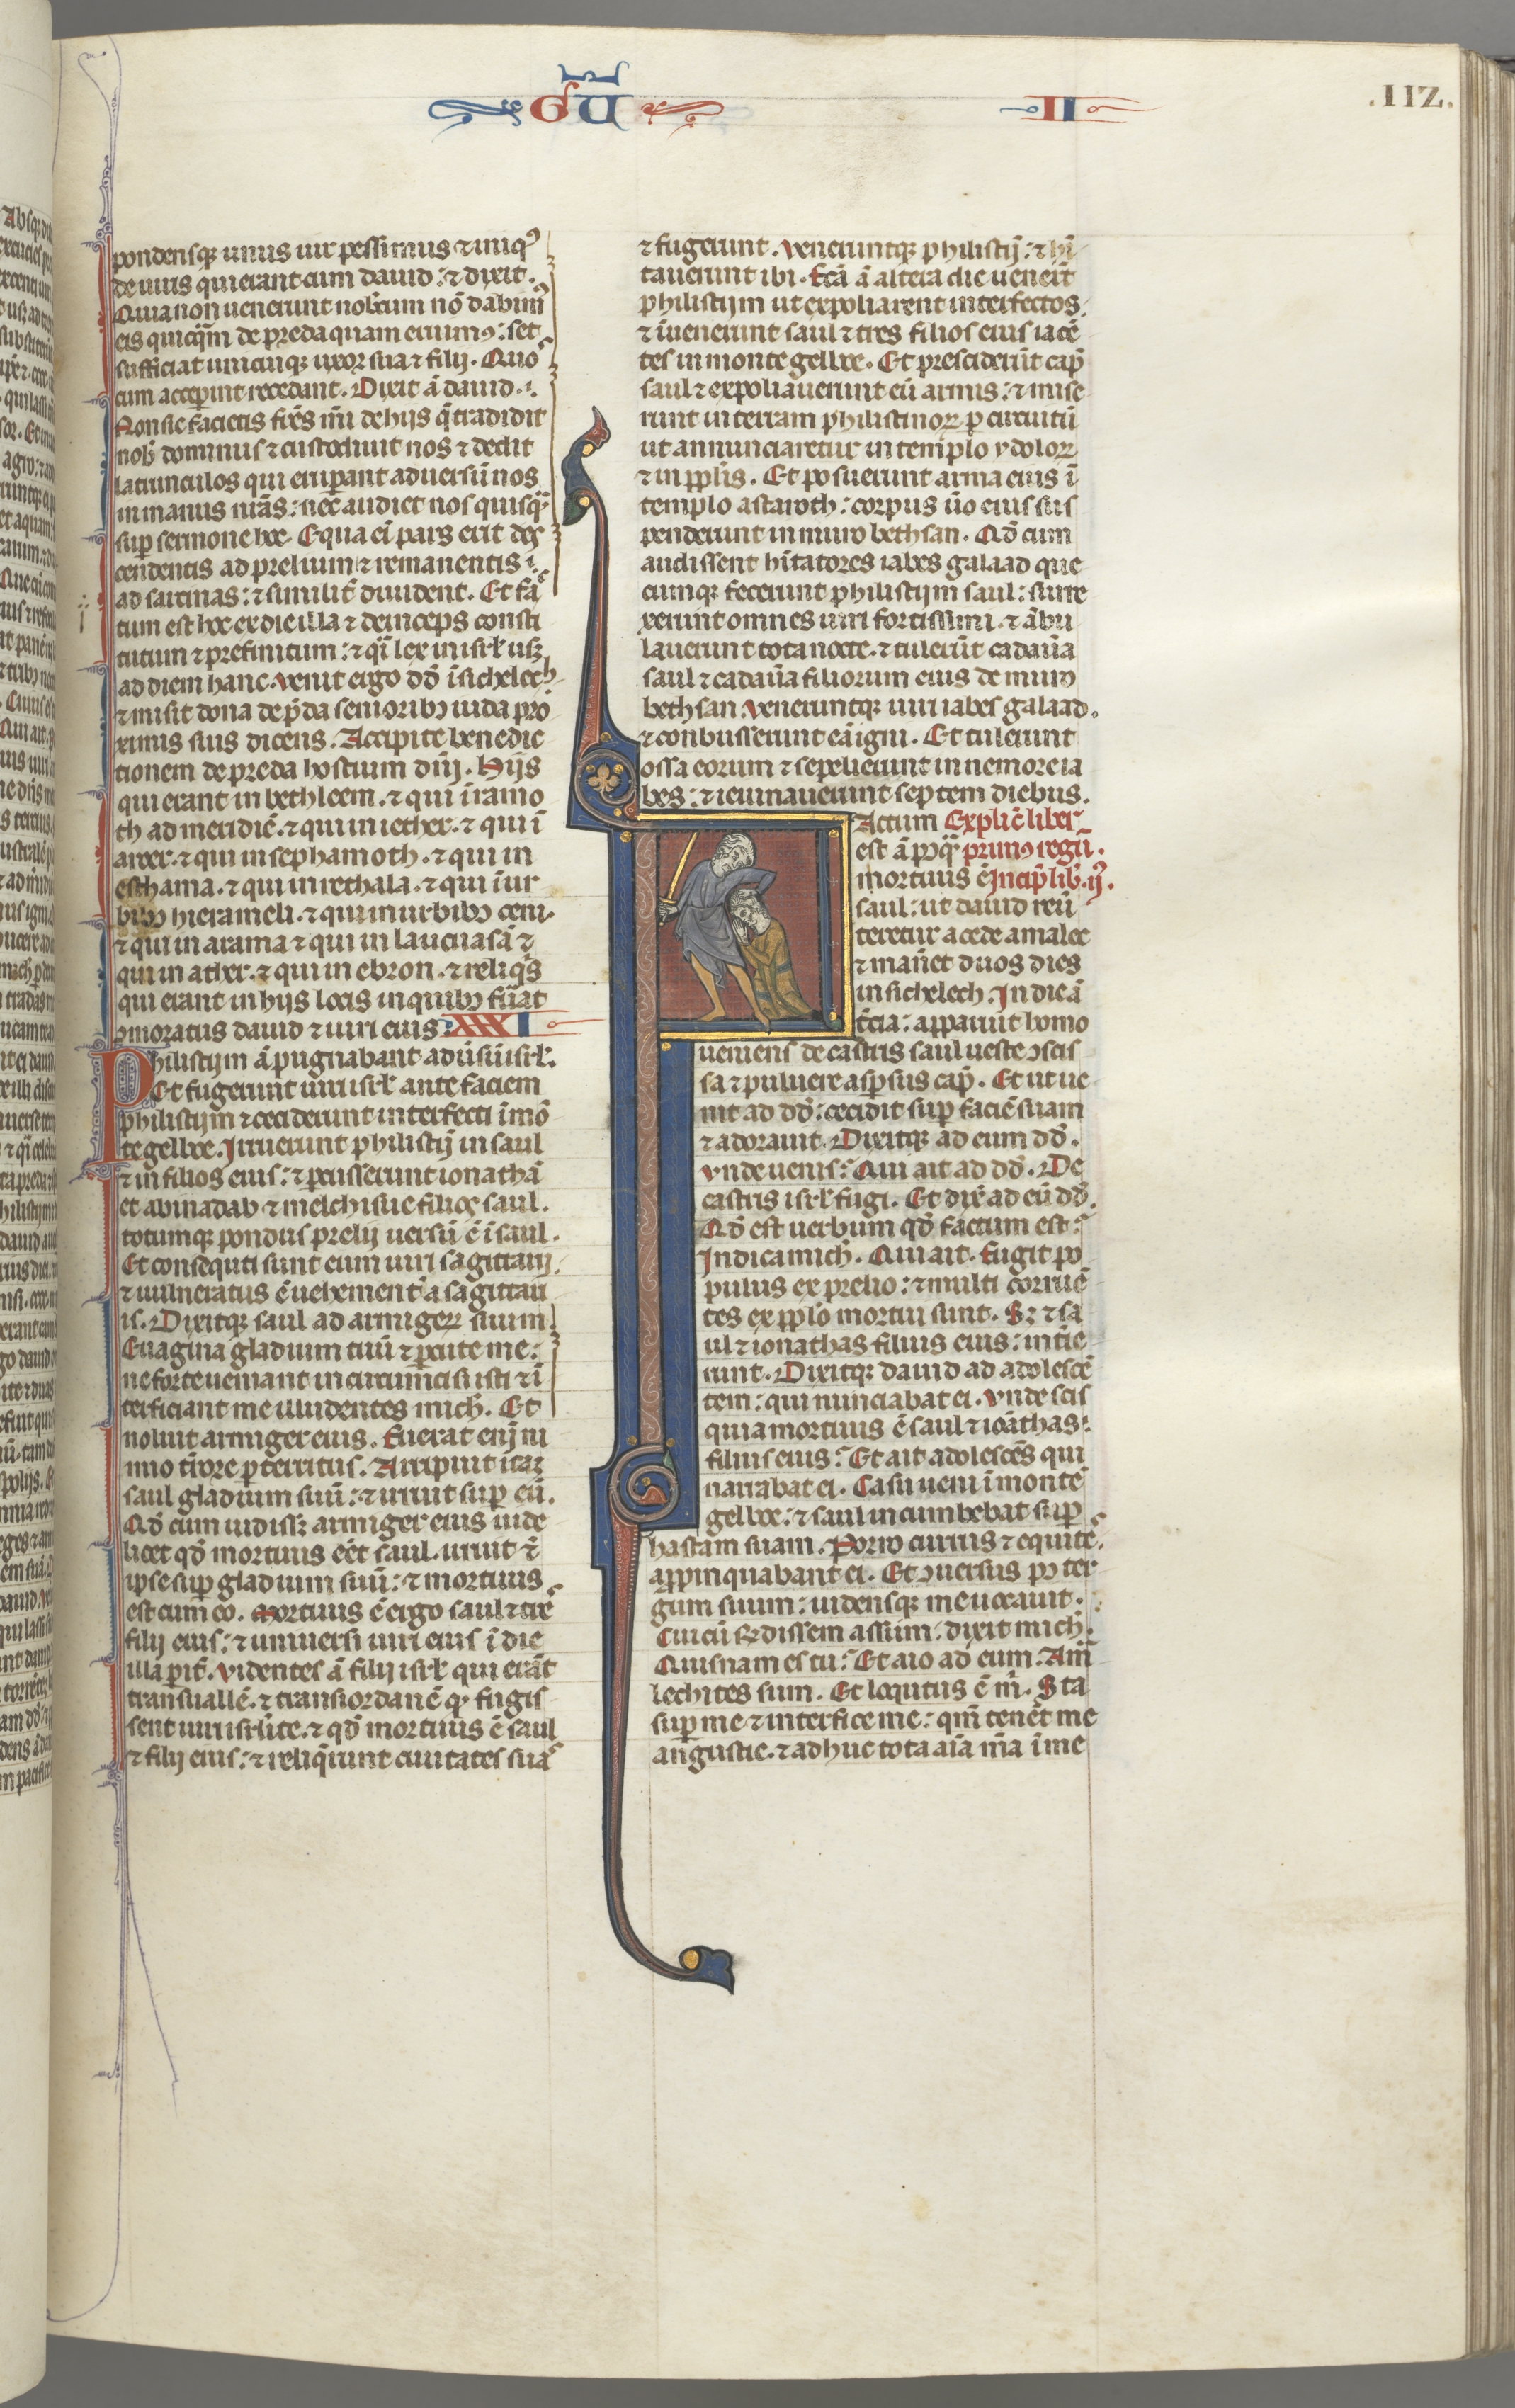 GŪ II .112.
pondensq; unus uir pessimus ⁊ iniqꝰ
de uiris qui erant cum dauid : ⁊ dixit .
Quia non uenerunt nobcum nō dabimꝰ
eis quicq̄m de preda quam eruimꝰ : set
sufficiat unicuiq; uxor sua ⁊ filij . Quos
cum acceperint recedant . Dixit ā dauid .
Non sic facietis fr̄es mi de hijs q̄ tradidit
nob̄ dominus ⁊ custodiuit nos ⁊ dedit
latrunculos qui eruperant aduersū nos
in manus nr̄as : nec audiet nos quisq̄
sup sermone hoc . Equa ei pars erit des
cendentis ad prelium ⁊ remanentis
ad sarcinas : ⁊ similit̄ diuident . Et fac
tum est hoc ex die illa ⁊ deinceps consti
tutum ⁊ prefinitum : ⁊ q̄i lex in isrl̄ usq;
ad diem hanc . Venit ergo dd̄ ī sichelech
⁊ misit dona de p̄da senioribꝰ iuda pro
ximis suis dicens . Accipite benedic
tionem de preda hostium dn̄i . Hijs
qui erant in bethleem . ⁊ qui ī ramo
th ad meridiē . ⁊ qui in iether . ⁊ qui ī
aroer . ⁊ qui in sephamoth . ⁊ qui in
esthama . ⁊ qui in rethala . ⁊ qui ī ur
bibꝰ hierameli . ⁊ qui in urbibꝰ ceni .
⁊ qui in arama ⁊ qui in lacu asā ⁊
qui in ather . ⁊ qui in ebron . ⁊ reliq̄s
qui erant in hijs locis in quibꝰ fuāt
ꝯmoratus dauid ⁊ uiri eius . XXXI
Philistijm ā pugnabant adūsū isrl̄ .
Et fugerunt uiri isrl̄ ante faciem
philistijm ⁊ ceciderunt interfecti ī mō
te gelboe . Irruerunt philistij̄ in saul
⁊ in filios eius : ⁊ percusserunt ionathā
et abinadab ⁊ melchisue filios saul .
totumq; pondus prelij uersū ē ī saul .
Et consequti sunt eum uiri sagittarij .
⁊ uulneratus ē uehement̄ a sagittari
is . Dixitq; saul ad armigerū suum
Euagina gladium tuū ⁊ percute me :
ne forte ueniant incircūcisi isti ⁊ ī
terficiant me illudentes mich̄ . Et
noluit armiger eius . Fuerat enī ni
mio timore perterritus . Arripuit itaq;
saul gladium suū : ⁊ irruit sup eū .
Qd̄ cum uidisset armiger eius uide
licet qd̄ mortuus eēt saul . irruit ⁊
ipse sup gladium suū : ⁊ mortuus
est cum eo . Mortuus ē ergo saul ⁊ tres
filij eius : ⁊ uniuersi uiri eius ī die
illa pit̄ . Videntes ā filij isrl̄ qui erāt
trans uallē . ⁊ trans iordanē qd̄ fugis
sent uiri isrl̄ite . ⁊ qd̄ mortuus ē saul
⁊ filij eius : ⁊ reliqūunt ciuitates suas
⁊ fugerunt . Veneruntq; philistij̄ : ⁊ hī
tauerunt ibi . Fcā ā altera die uenerūt
philistijm ut expoliarent interfectos
⁊ īuenerunt saul ⁊ tres filios eius iacē
tes in monte gelboe . Et presciderūt cap̄
saul ⁊ expoliauerunt eū armis : ⁊ mise
runt in terram philistinoꝝ p circuitū
ut annunciaretur in templo ydoloꝝ
⁊ in ppl̄is . Et posuerunt arma eius ī
templo astaroth : corpus ūo eius sus
penderunt in muro bethsan . Qd̄ cum
audissent hītatores iabes galaad que
cumq; fecerunt philistijm saul : surre
xerunt omnes uiri fortissimi . ⁊ ābu
lauerunt tota nocte . ⁊ tulerūt cadaūa
saul ⁊ cadaūa filiorum eius de muro
bethsan . Veneruntq; uiri iabes galaad .
⁊ conbusserunt eā igni . Et tulerunt
ossa eorum ⁊ sepelierunt in nemore ia
bes : ⁊ ieiunauerunt septem diebus .
FActum Explic̄ liber
est ā pꝯq̄ primꝰ regū .
mortuus ē Incip̄ lib̄ . ij .
saul : ut dauid reū
teretur a cede amalec
⁊ manēt duos dies
in sichelech . In die ā
t̄cia : apparuit homo
ueniens de castris saul ueste ꝯscis
sa ⁊ puluere asp̄sus cap̄ . Et ut ue
nit ad dd̄ : cecidit sup faciē suam
⁊ adorauit . Dixitq; ad eum dd̄ .
Vnde uenis : Qui ait ad dd̄ . De
castris isrl̄ fugi . Et dix̄ ad eū dd̄ .
Qd̄ est uerbum qd̄ factum est :
Indica mich̄ . Qui ait . Fugit po
pulus ex prelio : ⁊ multi corruē
tes ex ppl̄o mortui sunt . S; ⁊ sa
ul ⁊ ionathas filius eius : intie
runt . Dixitq; dauid ad adolescē
tem : qui nunciabat ei . Vnde scis
quia mortuus ē saul ⁊ ioāthas :
filius eius : Et ait adolescēs qui
narrabat ei . Casu ueni ī monte
gelboe : ⁊ saul incumbebat sup
hastam suam . Porro currus ⁊ equites
appinquabant ei . Et ꝯuersus pꝯ ter
gum suum : uidensq; me uocauit .
Cui cū rn̄dissem assum : dixit mich̄ .
Quisnam es tu : Et aio ad eum . Am̄
lechites sum . Et loqutus ē m̄ . Sta
sup me ⁊ interfice me : qm̄ tenēt me
angustie . ⁊ adhuc tota aīa m̄a ī me